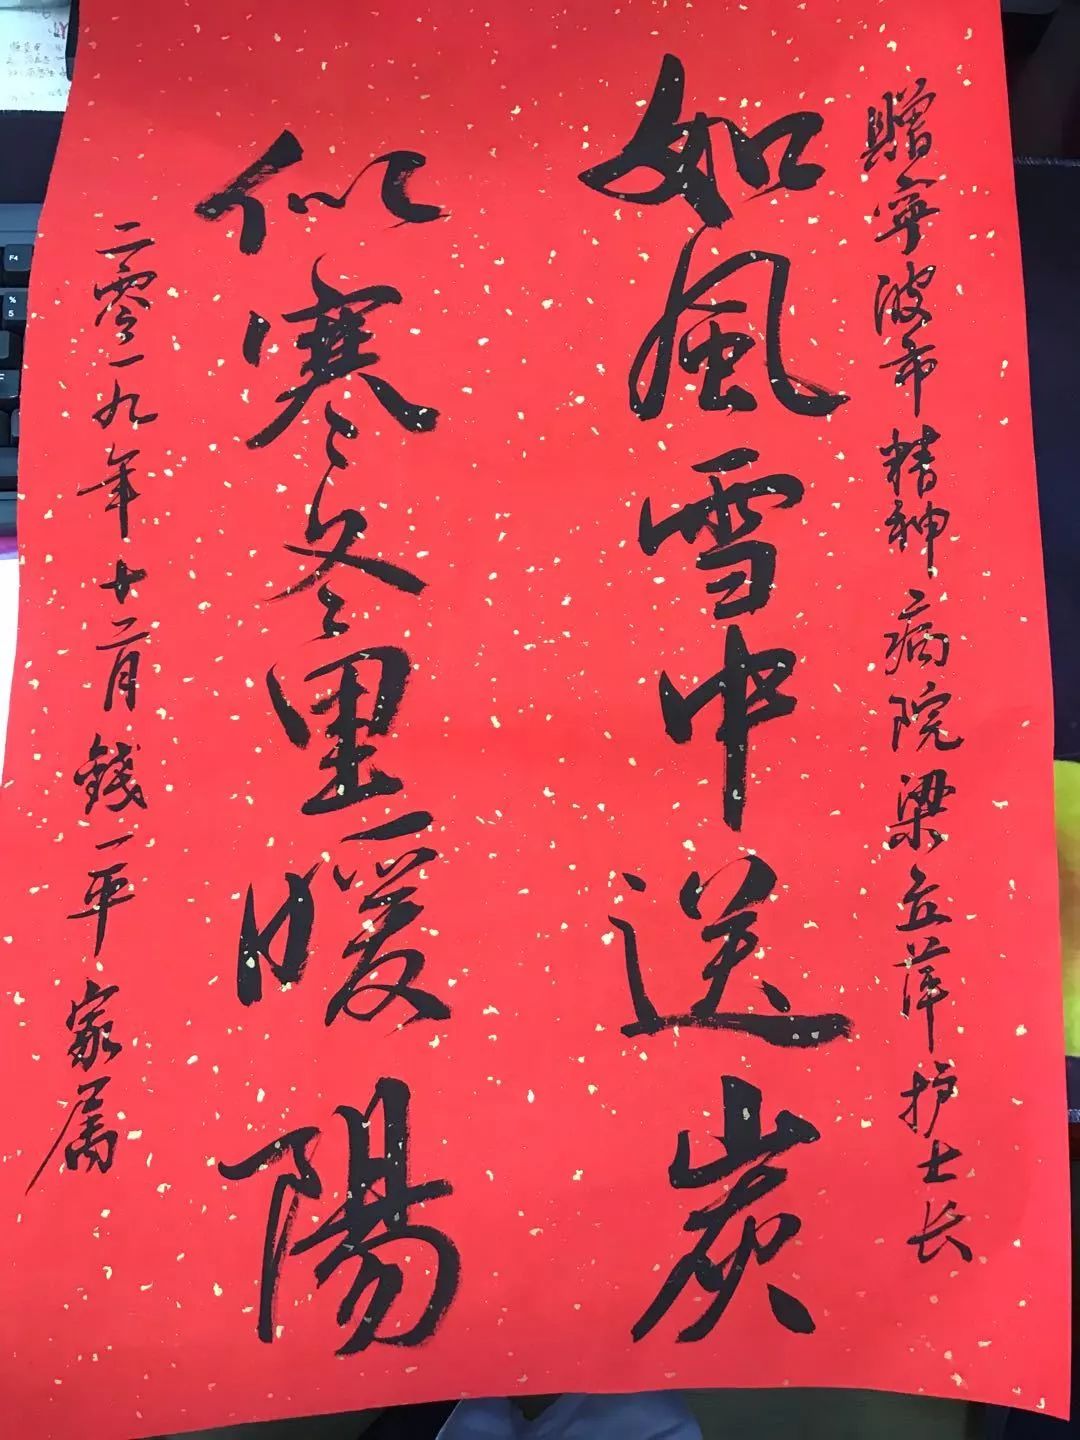 贈寜波市精神病院梁立萍护士长
如風雪中送炭
似寒冬里暖陽
二零一九年十二月錢一平家属
F4
%
5